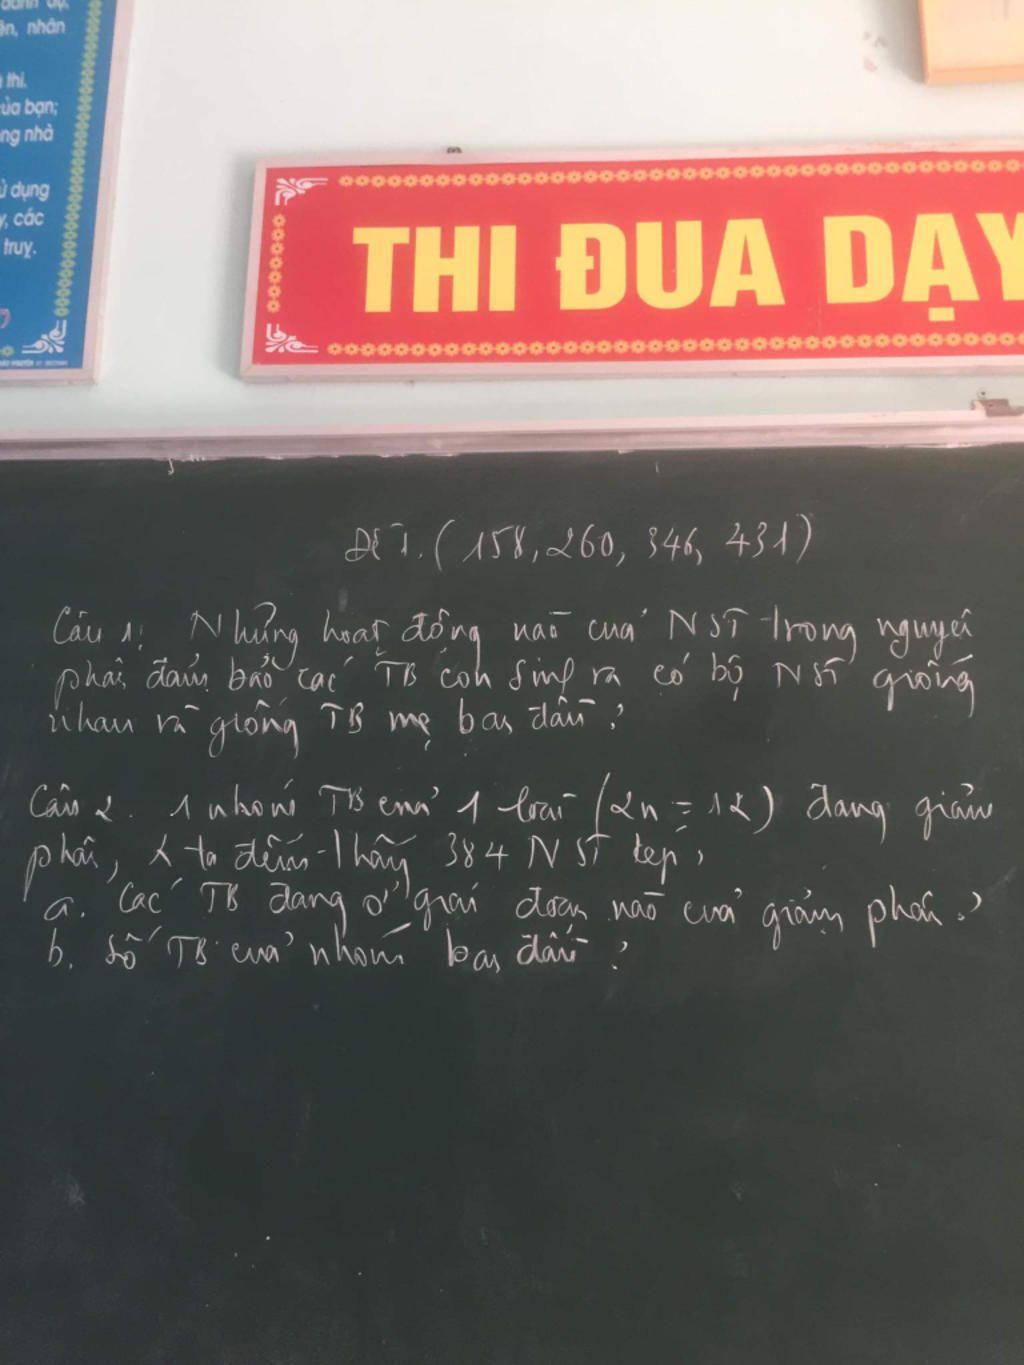 ên, nhân
thi.
của bạn;
ng nhà
ử dụng
y, các
truỵ.
THI ĐUA DẠY
Đề 1. (158, 260, 346, 431)
Câu 1: Những hoạt động nào của NST trong nguyên
phân đảm bảo các TB con sinh ra có bộ NST giống
nhau và giống TB mẹ ban đầu?
Câu 2. 1 nhóm TB của 1 loài (2n = 12) đang giảm
phân, ta đếm thấy 384 NST kép,
a. Các TB đang ở giai đoạn nào của giảm phân?
b. Số TB của nhóm ban đầu?